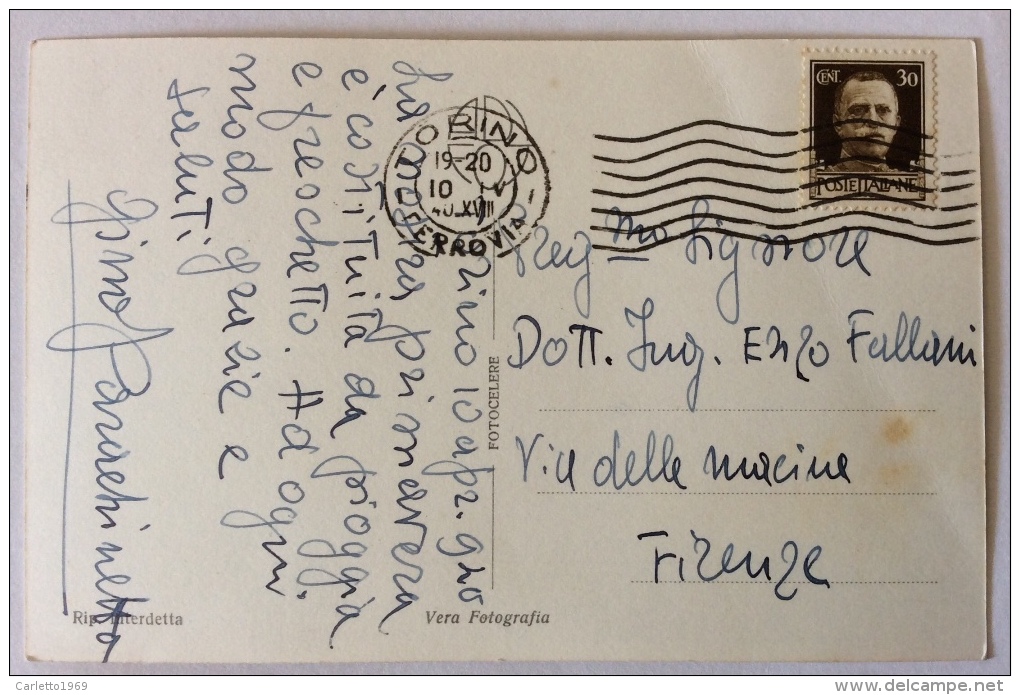 Torino 10 apr. XVIII
La magra primavera
è costituita da pioggia
e freschetto. Ad ogni
modo grazie e
saluti
CENT. 30
POSTE ITALIANE
TORINO
19-20
10 IV
40 XVIII
FERROVIA
Preg mo Signore
Dott. Ing. Enzo Fallani
Via delle macine
Firenze
FOTOCELERE
Rip. interdetta
Vera Fotografia
Carletto1969
delcampe.net